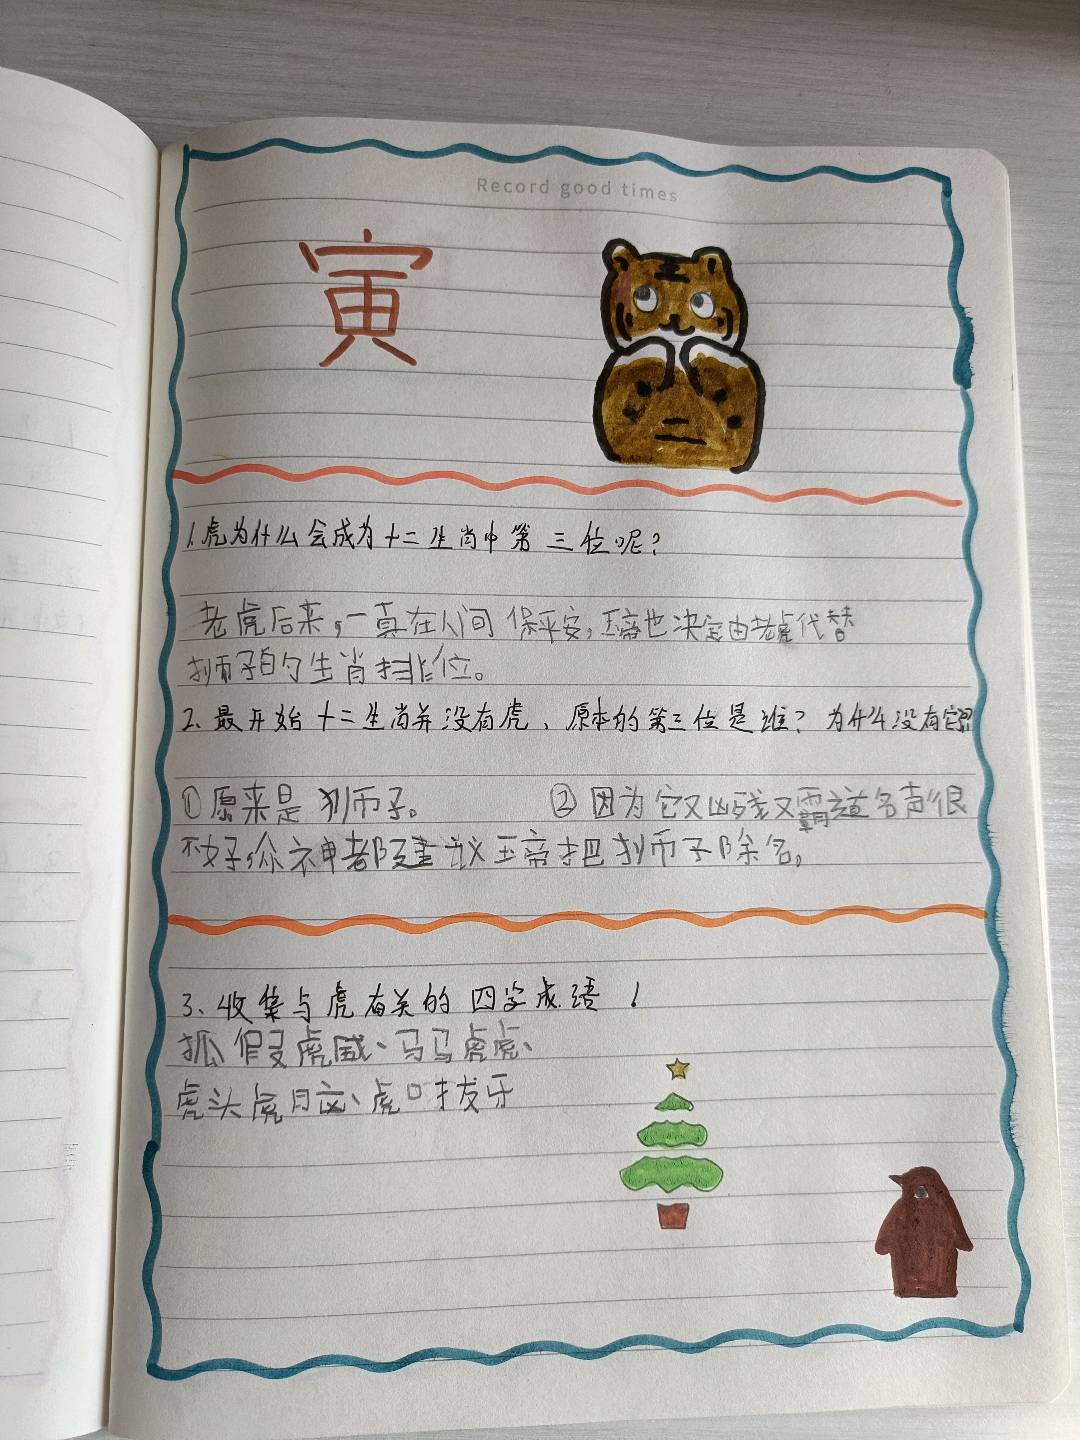 Record good times
寅
1.虎为什么会成为十二生肖中第三位呢？
老虎后来，一真在人间保平安，玉帝也决定由老虎代替
狮子的生肖排位。
2、最开始十二生肖并没有虎、原本的第三位是谁？为什么没有它
①原来是狮子。 ②因为它又凶残又霸道名声很
不好，众神都建议玉帝把狮子除名。
3、收集与虎有关的四字成语！
狐假虎威、马马虎虎、
虎头虎脑、虎口拔牙